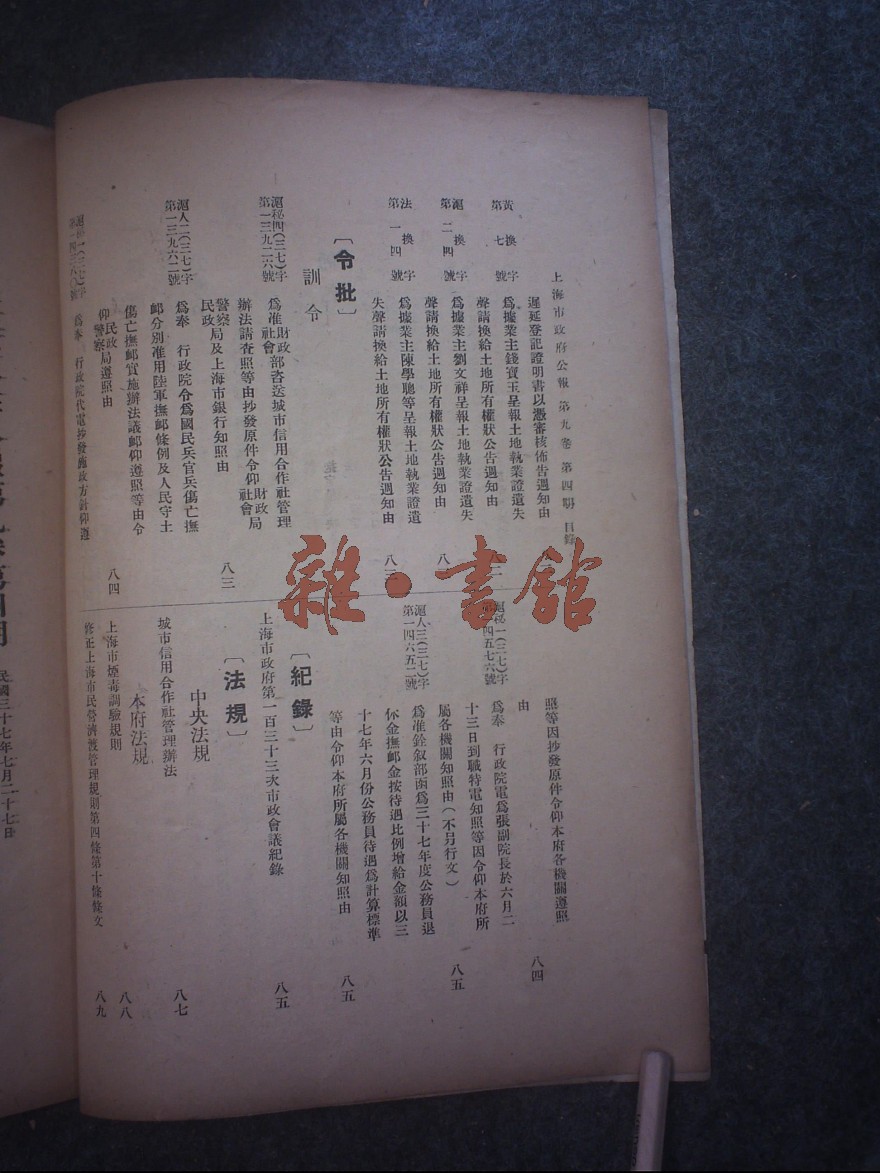 上海市政府公報 第九卷 第四期 目錄
遲延登記證明書以憑審核佈告週知由
黃換字
第七號
為據業主錢寶玉呈報土地執業證遺失
聲請換給土地所有權狀公告週知由
滬換字
第二四號
為據業主劉文祥呈報土地執業證遺失
聲請換給土地所有權狀公告週知由
法換字
第一四號
為據業主陳學聰等呈報土地執業證遺
失聲請換給土地所有權狀公告週知由
〔令批〕
訓令
滬秘四(三七)字
第一三九二六號
為准財政
社會部咨送城市信用合作社管理
辦法請查照等由抄發原件令仰財政局
社會
警察
民政局及上海市銀行知照由
八三
滬人二(三七)字
第一三九六二號
為奉 行政院令為國民兵官兵傷亡撫
卹分別准用陸軍撫卹條例及人民守土
傷亡撫卹實施辦法議卹仰遵照等由令
仰民政
警察局遵照由
八四
為奉 行政院代電抄發施政方針仰遵
照等因抄發原件令仰本府各機關遵照
由
八四
滬秘一(三七)字
四五七六號
為奉 行政院電為張副院長於六月二
十三日到職特電知照等因令仰本府所
屬各機關知照由(不另行文)
八五
滬人三(三七)字
第一四六五二號
為准銓叙部函為三十七年度公務員退
休金撫卹金按待遇比例增給金額以三
十七年六月份公務員待遇為計算標準
等由令仰本府所屬各機關知照由
八五
〔紀錄〕
上海市政府第一百三十三次市政會議紀錄
八五
〔法規〕
中央法規
城市信用合作社管理辦法
八七
本府法規
上海市煙毒調驗規則
八八
修正上海市民營濟渡管理規則第四條第十條條文
八九
民國三十七年七月二十七日
雜·書館